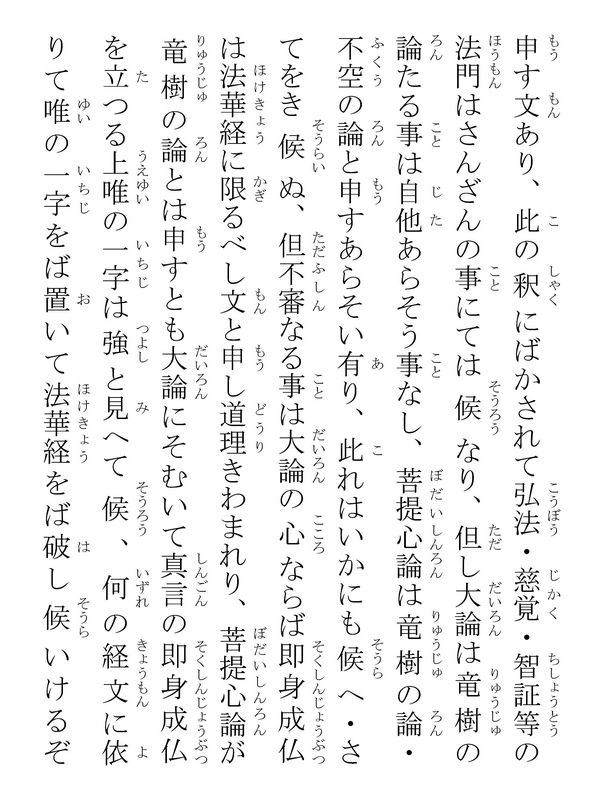 申す文あり、此の釈にばかされて弘法・慈覚・智証等の
法門はさんざんの事にては候なり、但し大論は竜樹の
論たる事は自他あらそう事なし、菩提心論は竜樹の論・
不空の論と申すあらそい有り、此れはいかにも候へ・さ
てをき候ぬ、但不審なる事は大論の心ならば即身成仏
は法華経に限るべし文と申し道理きわまれり、菩提心論が
竜樹の論とは申すとも大論にそむいて真言の即身成仏
を立つる上唯の一字は強と見へて候、何の経文に依
りて唯の一字をば置いて法華経をば破し候いけるぞ